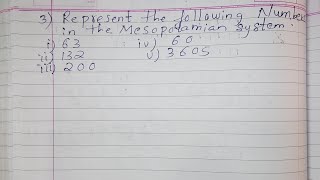 3) Represent the following Number
in the Mesopotamian System.
i) 63 iv) 60
ii) 132 v) 3605
iii) 200